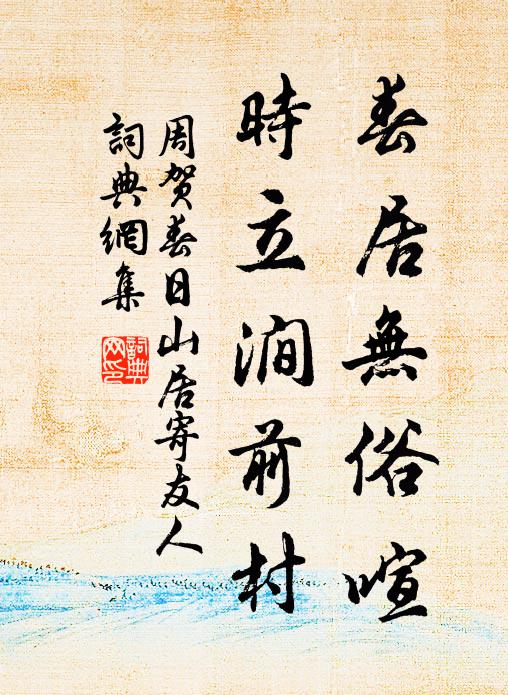 春居無俗喧
時立澗前村
周贺春日山居寄友人
詞典網集
詞典網印